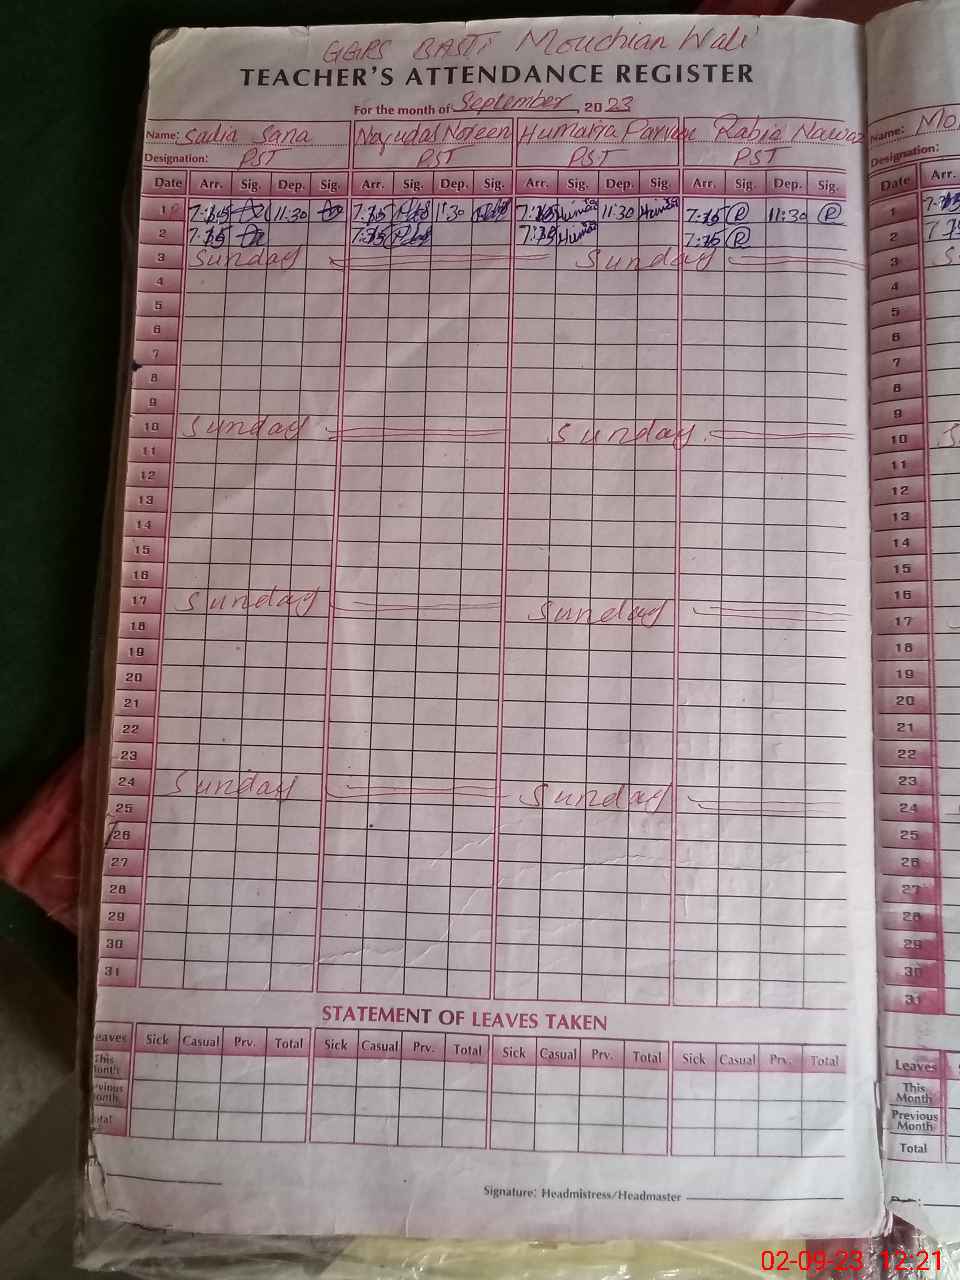 GGPS BASTi Mouchian Wali
TEACHER'S ATTENDANCE REGISTER
For the month of September 2023
Name: Sadia Sana Humaira Parveen Rabia Nawaz
Designation: PST PST PST PST
Date Arr. Sig. Dep. Sig. Arr. Sig. Dep. Sig. Arr. Sig. Dep. Sig. Arr. Sig. Dep. Sig.
1 7:15 11:30 7:15 11:30 7:15 Huma 11:30 Huma 7:15 R 11:30 R
2 7:15 7:15 7:15 Huma 7:15 R
3 Sunday Sunday
4
5
6
7
8
9
10 Sunday Sunday
11
12
13
14
15
16
17 Sunday Sunday
18
19
20
21
22
23
24 Sunday Sunday
25
26
27
28
29
30
31
STATEMENT OF LEAVES TAKEN
eaves Sick Casual Prv. Total Sick Casual Prv. Total Sick Casual Prv. Total Sick Casual Prv. Total
This
onth
vious
onth
otal
Signature: Headmistress/Headmaster
Name: Mo
Designation:
Date Arr.
1
2
3
4
5
6
7
8
9
10
11
12
13
14
15
16
17
18
19
20
21
22
23
24
25
26
27
28
29
30
31
Leaves
This
Month
Previous
Month
Total
02-09-23 12:21